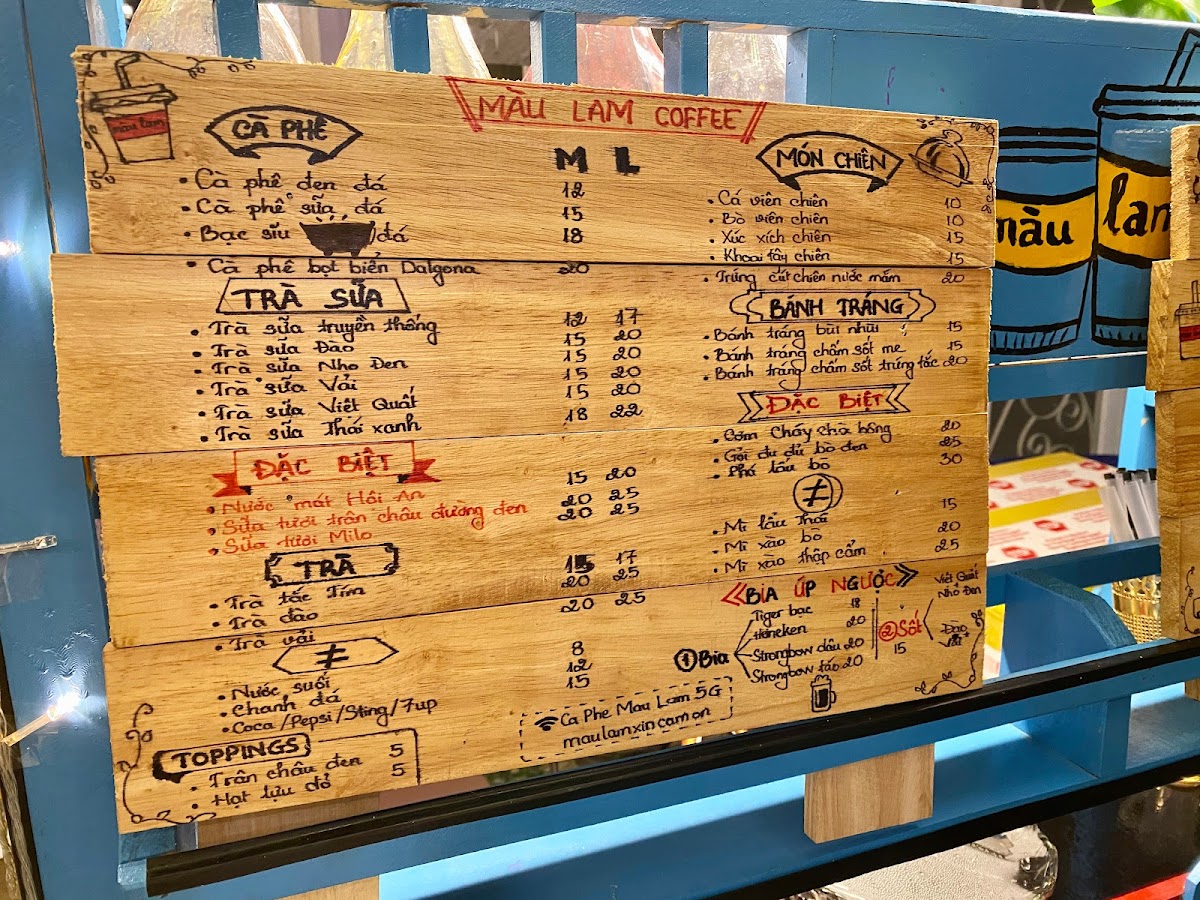 MÀU LAM COFFEE
màu lam
CÀ PHÊ
M L
• Cà phê đen đá 12
• Cà phê sữa đá 15
• Bạc sỉu đá 18
• Cà phê bọt biển Dalgona 20
TRÀ SỮA
• Trà sữa truyền thống 12 17
• Trà sữa Đào 15 20
• Trà sữa Nho Đen 15 20
• Trà sữa Vải 15 20
• Trà sữa Việt Quất 15 20
• Trà sữa Thái xanh 18 22
ĐẶC BIỆT
• Nước mát Hội An 15 20
• Sữa tươi trân châu đường đen 20 25
• Sữa tươi Milo 20 25
TRÀ
• Trà tắc Tím 15 17
• Trà đào 20 25
• Trà vải 20 25
≠
• Nước suối 8
• Chanh đá 12
• Coca/Pepsi/Sting/7up 15
TOPPINGS
• Trân châu đen 5
• Hạt lựu đỏ 5
MÓN CHIÊN
• Cá viên chiên 10
• Bò viên chiên 10
• Xúc xích chiên 15
• Khoai tây chiên 15
• Trứng cút chiên nước mắm 20
BÁNH TRÁNG
• Bánh tráng bùi nhùi 15
• Bánh tráng chấm sốt me 15
• Bánh tráng chấm sốt trứng tắc 20
ĐẶC BIỆT
• Cơm cháy chà bông 20
• Gỏi đu đủ bò đen 25
• Phá lấu bò 30
≠
• Mì lẩu Thái 15
• Mì xào bò 20
• Mì xào thập cẩm 25
BIA ÚP NGƯỢC
① Bia
Tiger bạc 18
Heineken 20
Strongbow dâu 20
Strongbow táo 20
② Sốt
15
Việt Quất
Nho Đen
Đào
Vải
Ca Phe Mau Lam 5G
maulamxincamon
màu
lam